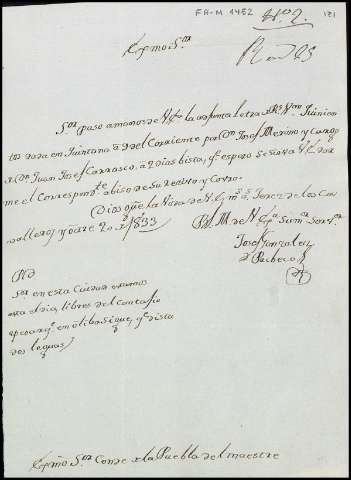 FA-M 1452
Nº 2.
121
Exmo Sor
Rvn 25
Sor paso a manos de V.E. la adjunta letra de Rs Vn Quinien
tos dada en Quintana 2 del Corriente por Dn Josef Merino y cargo
de Dn Juan Josef Carrasco, a 2 dias vista, qe espero se sirva V.E. dar
me el correspondte abiso de su recivo y Covro.
Dios gue la Vida de V.E. ms as Jerez de los Ca
valleros y
20 de 1833
B. L. M. de V. E. Su mr Servor
Josef Gonzalez
Pacheco
PD
Sor en esta Ciudad estamos
asta el dia libres del contagio
en Olibensa, qe dista
dos leguas
Exmo Sor Conde de la Puebla del maestre